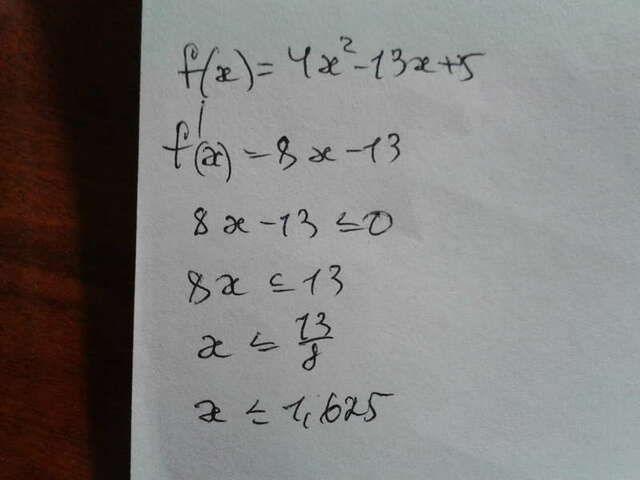 f(x) = 4x² - 13x + 5
f'(x) = 8x - 13
8x - 13 ≤ 0
8x ≤ 13
x ≤ 13/8
x ≤ 1,625